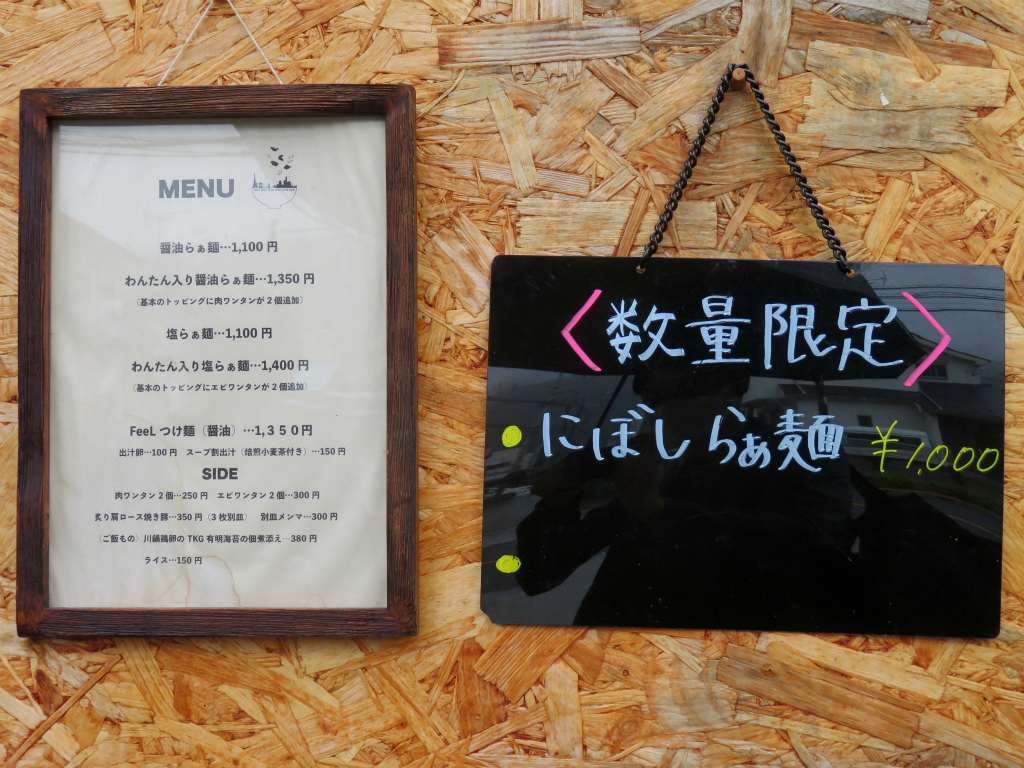 MENU
醤油らぁ麺…1,100 円
わんたん入り醤油らぁ麺…1,350 円
（基本のトッピングに肉ワンタンが 2 個追加）
塩らぁ麺…1,100 円
わんたん入り塩らぁ麺…1,400 円
（基本のトッピングにエビワンタンが 2 個追加）
FeeL つけ麺（醤油）…1,３５０円
出汁卵…100 円　スープ割出汁（焙煎小麦茶付き）…150 円
SIDE
肉ワンタン 2 個…250 円　エビワンタン 2 個…300 円
炙り肩ロース焼き豚…350 円（3 枚別皿）　別皿メンマ…300 円
（ご飯もの）川鍋鶏卵の TKG 有明海苔の佃煮添え…380 円
ライス…150 円
〈数量限定〉
にぼしらぁ麺 ¥1,000